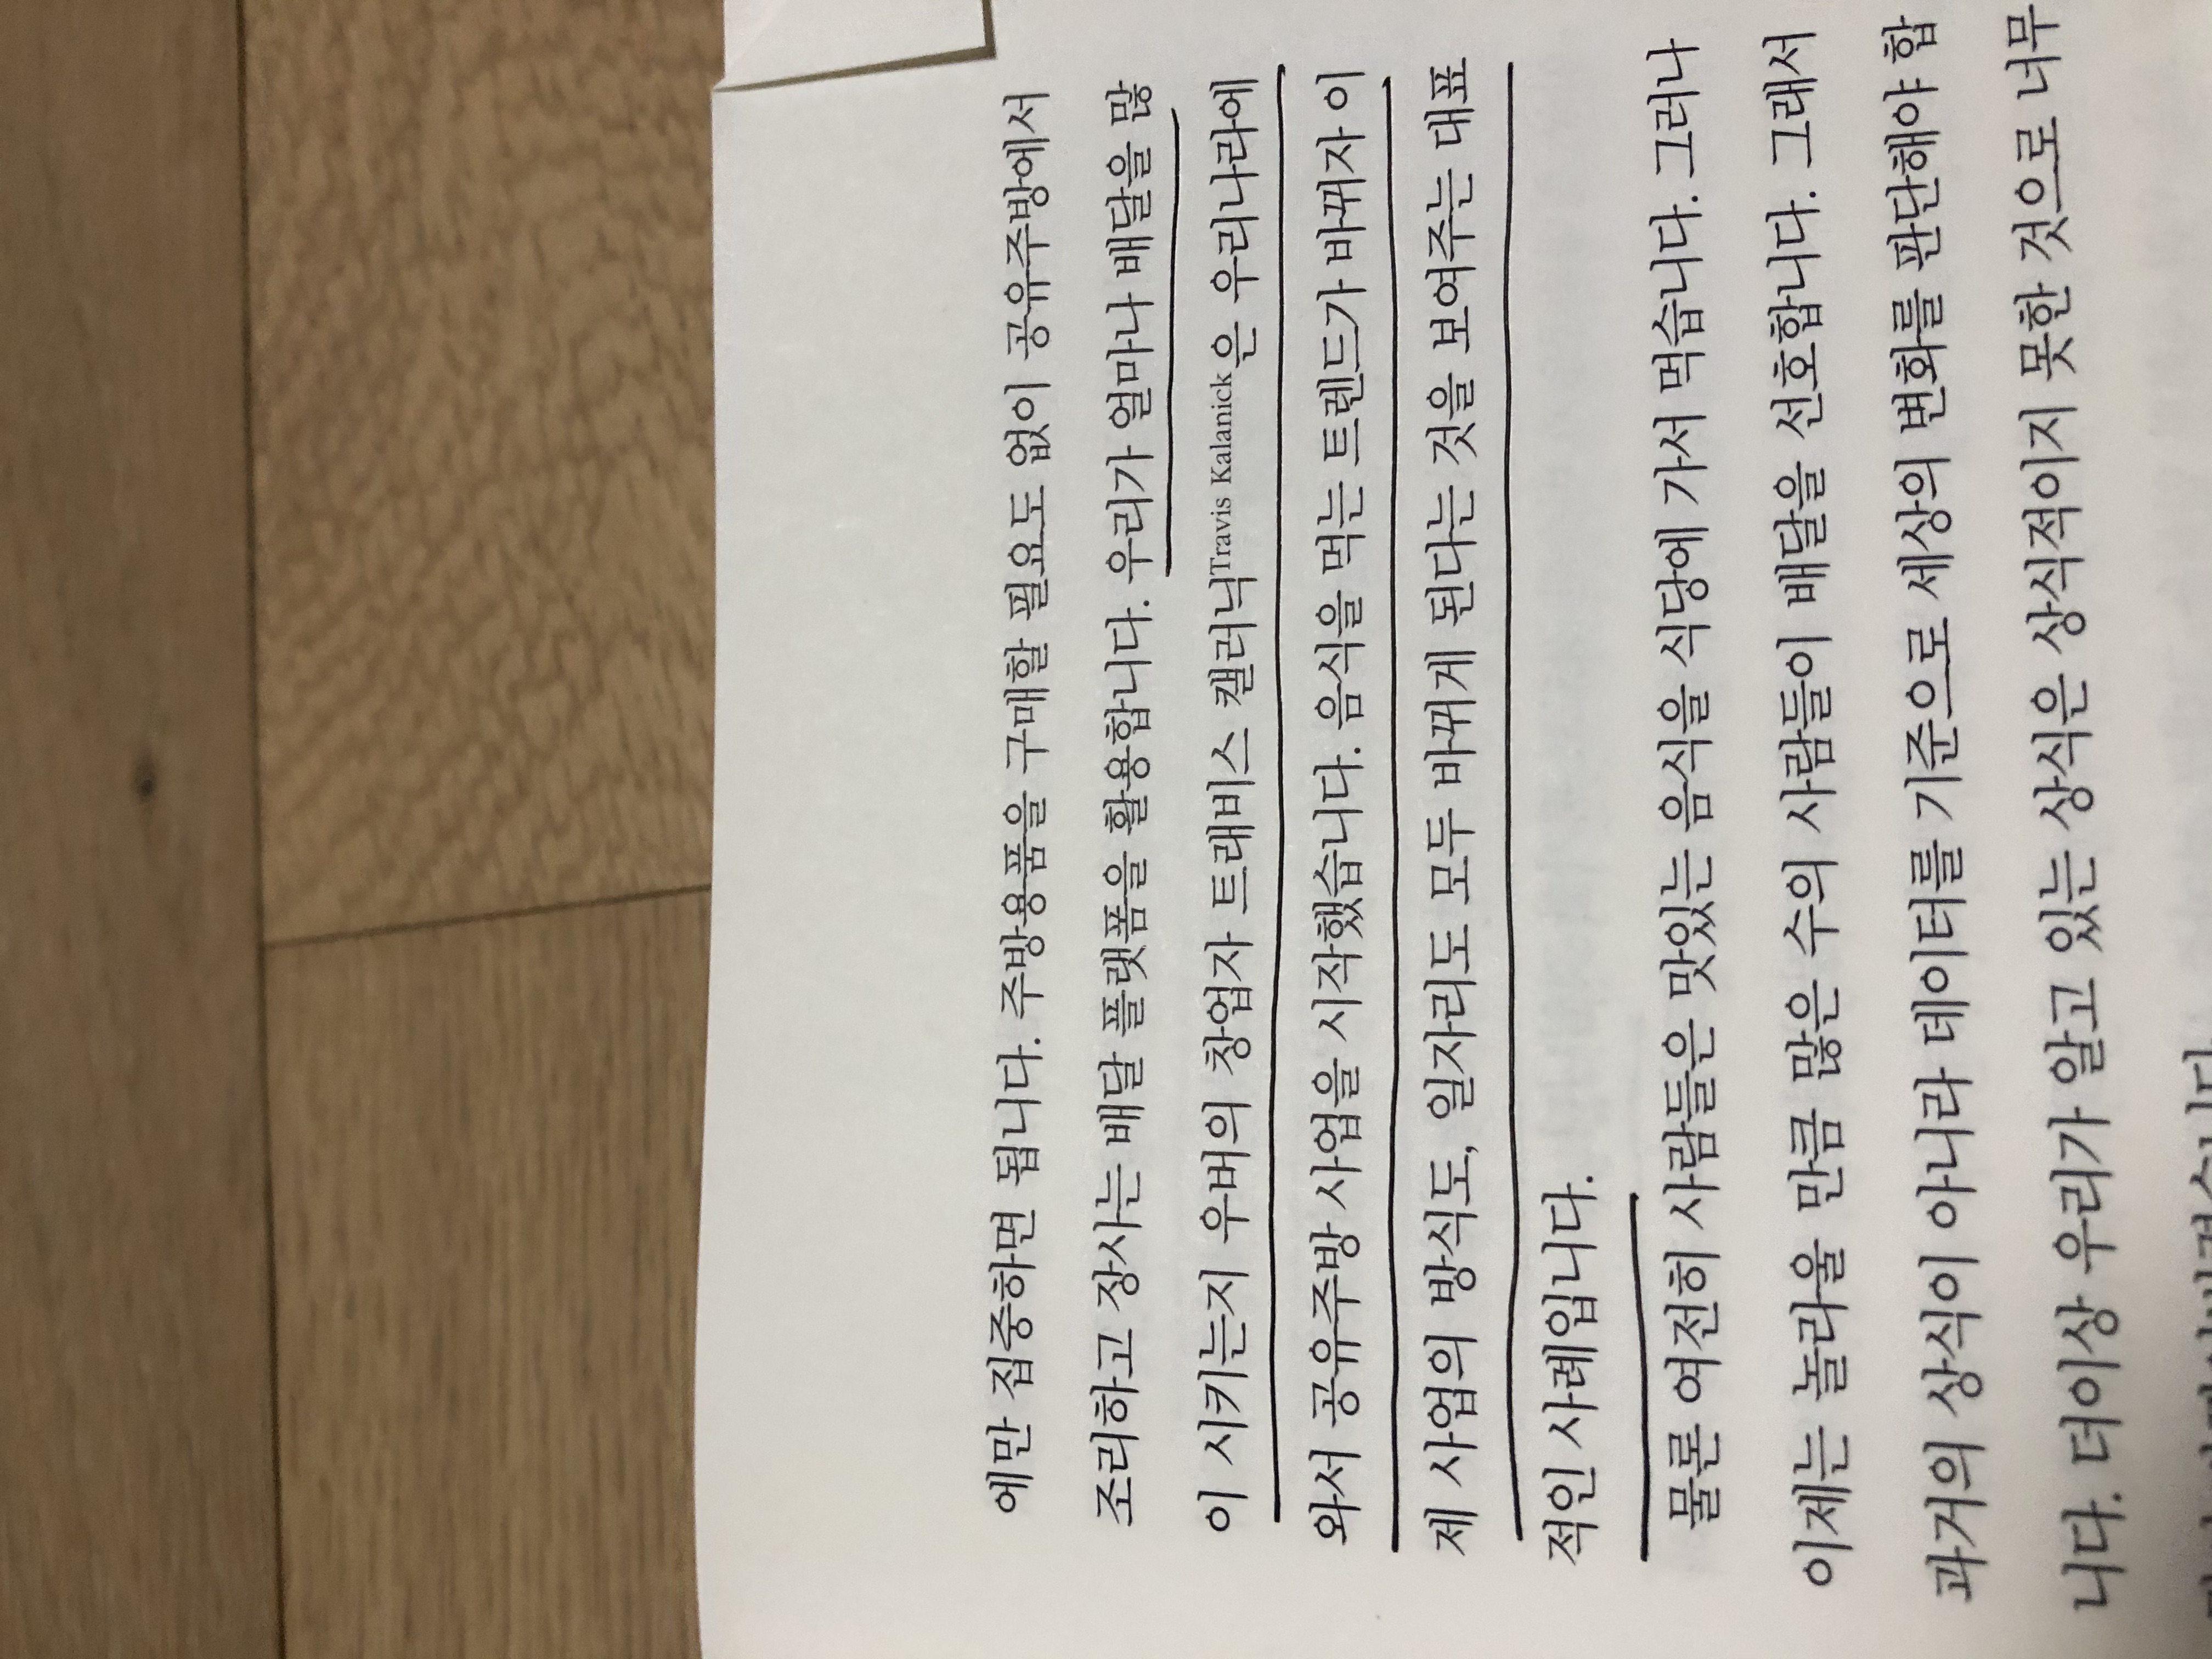 에만 집중하면 됩니다. 주방용품을 구매할 필요도 없이 공유주방에서
조리하고 장사는 배달 플랫폼을 활용합니다. 우리가 얼마나 배달을 많
이 시키는지 우버의 창업자 트래비스 캘러닉Travis Kalanick은 우리나라에
와서 공유주방 사업을 시작했습니다. 음식을 먹는 트렌드가 바뀌자 이
제 사업의 방식도, 일자리도 모두 바뀌게 된다는 것을 보여주는 대표
적인 사례입니다.
물론 여전히 사람들은 맛있는 음식을 식당에 가서 먹습니다. 그러나
이제는 놀라울 만큼 많은 수의 사람들이 배달을 선호합니다. 그래서
과거의 상식이 아니라 데이터를 기준으로 세상의 변화를 판단해야 합
니다. 더이상 우리가 알고 있는 상식은 상식적이지 못한 것으로 너무